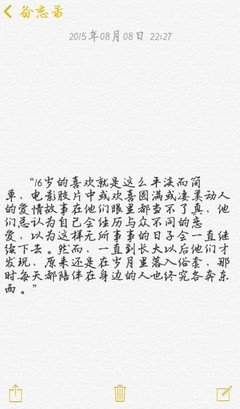 备忘录
2015年08月08日 22:27
“16岁的喜欢就是这么平淡而简
单，电影胶片中或欢喜圆满或凄美动人
的爱情故事在他们眼里都当不了真，他
们总认为自己会经历与众不同的恋
爱，以为这样无所事事的日子会一直继
续下去。然而，一直到长大以后他们才
发现，原来还是在岁月里落入俗套，那
时每天都陪伴在身边的人也终究各奔东
西。”